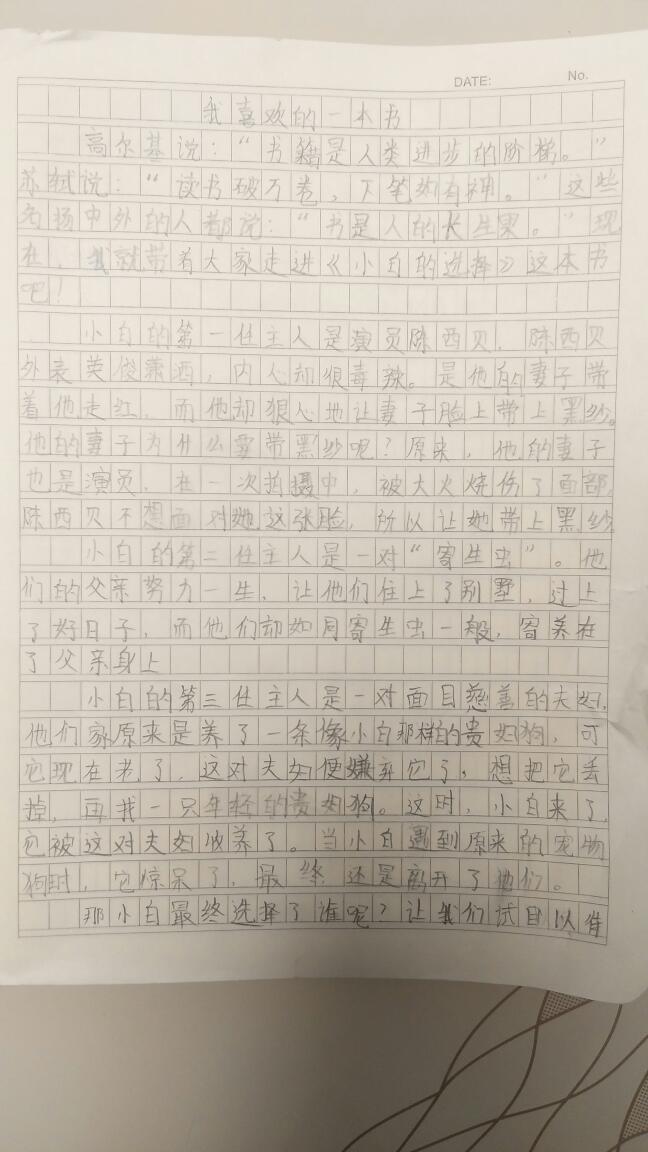 DATE: No.
我喜欢的一本书
高尔基说：“书籍是人类进步的阶梯。”
苏轼说：“读书破万卷，下笔如有神。”这些
名扬中外的人都说：“书是人的长生果。”现
在，我就带着大家走进《小白的选择》这本书
吧！
小白的第一任主人是演员陈西贝，陈西贝
外表英俊萧洒，内心却狠毒辣。是他的妻子带
着他走红，而他却狠心地让妻子脸上带上黑纱。
他的妻子为什么要带黑纱呢？原来，他的妻子
也是演员，在一次拍摄中，被大火烧伤了面部，
陈西贝不想面对她这张脸，所以让她带上黑纱
小白的第二任主人是一对“寄生虫”。他
们的父亲努力一生，让他们住上了别墅，过上
了好日子，而他们却如同寄生虫一般，寄养在
了父亲身上
小白的第三任主人是一对面目慈善的夫妇，
他们家原来是养了一条像小白那样的贵妇狗，可
它现在老了，这对夫妇便嫌弃它了，想把它丢
掉，再找一只年轻的贵妇狗。这时，小白来了，
它被这对夫妇收养了。当小白遇到原来的宠物
狗时，它惊呆了，最终还是离开了他们。
那小白最终选择了谁呢？让我们试目以待